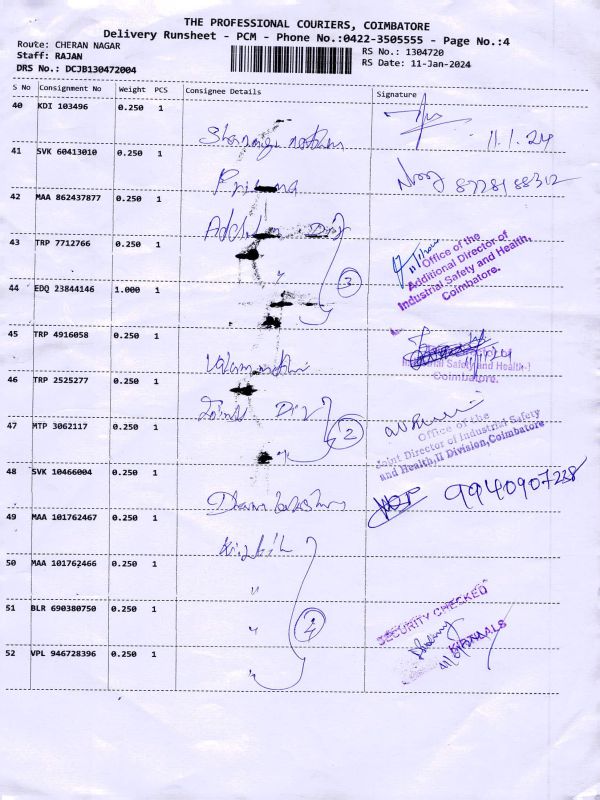 THE PROFESSIONAL COURIERS, COIMBATORE
Delivery Runsheet - PCM - Phone No.:0422-3505555 - Page No.:4
Route: CHERAN NAGAR
RS No.: 1304720
Staff: RAJAN
RS Date: 11-Jan-2024
DRS No.: DCJB130472004
S No Consignment No Weight PCS Consignee Details Signature
40 KDI 103496 0.250 1
11.1.24
41 SVK 60413010 0.250 1
42 MAA 862437877 0.250 1
43 TRP 7712766 0.250 1
Office of the
Additional Director of
Industrial Safety and Health,
Coimbatore.
44 EDQ 23844146 1.000 1
3
45 TRP 4916058 0.250 1
Industrial Safety and Health-I
Coimbatore.
46 TRP 2525277 0.250 1
47 MTP 3062117 0.250 1
2
Office of the
Joint Director of Industrial Safety
and Health,II Division,Coimbatore
48 SVK 10466004 0.250 1
9940907238
49 MAA 101762467 0.250 1
50 MAA 101762466 0.250 1
"
51 BLR 690380750 0.250 1
"
4
SECURITY CHECKED
52 VPL 946728396 0.250 1
"